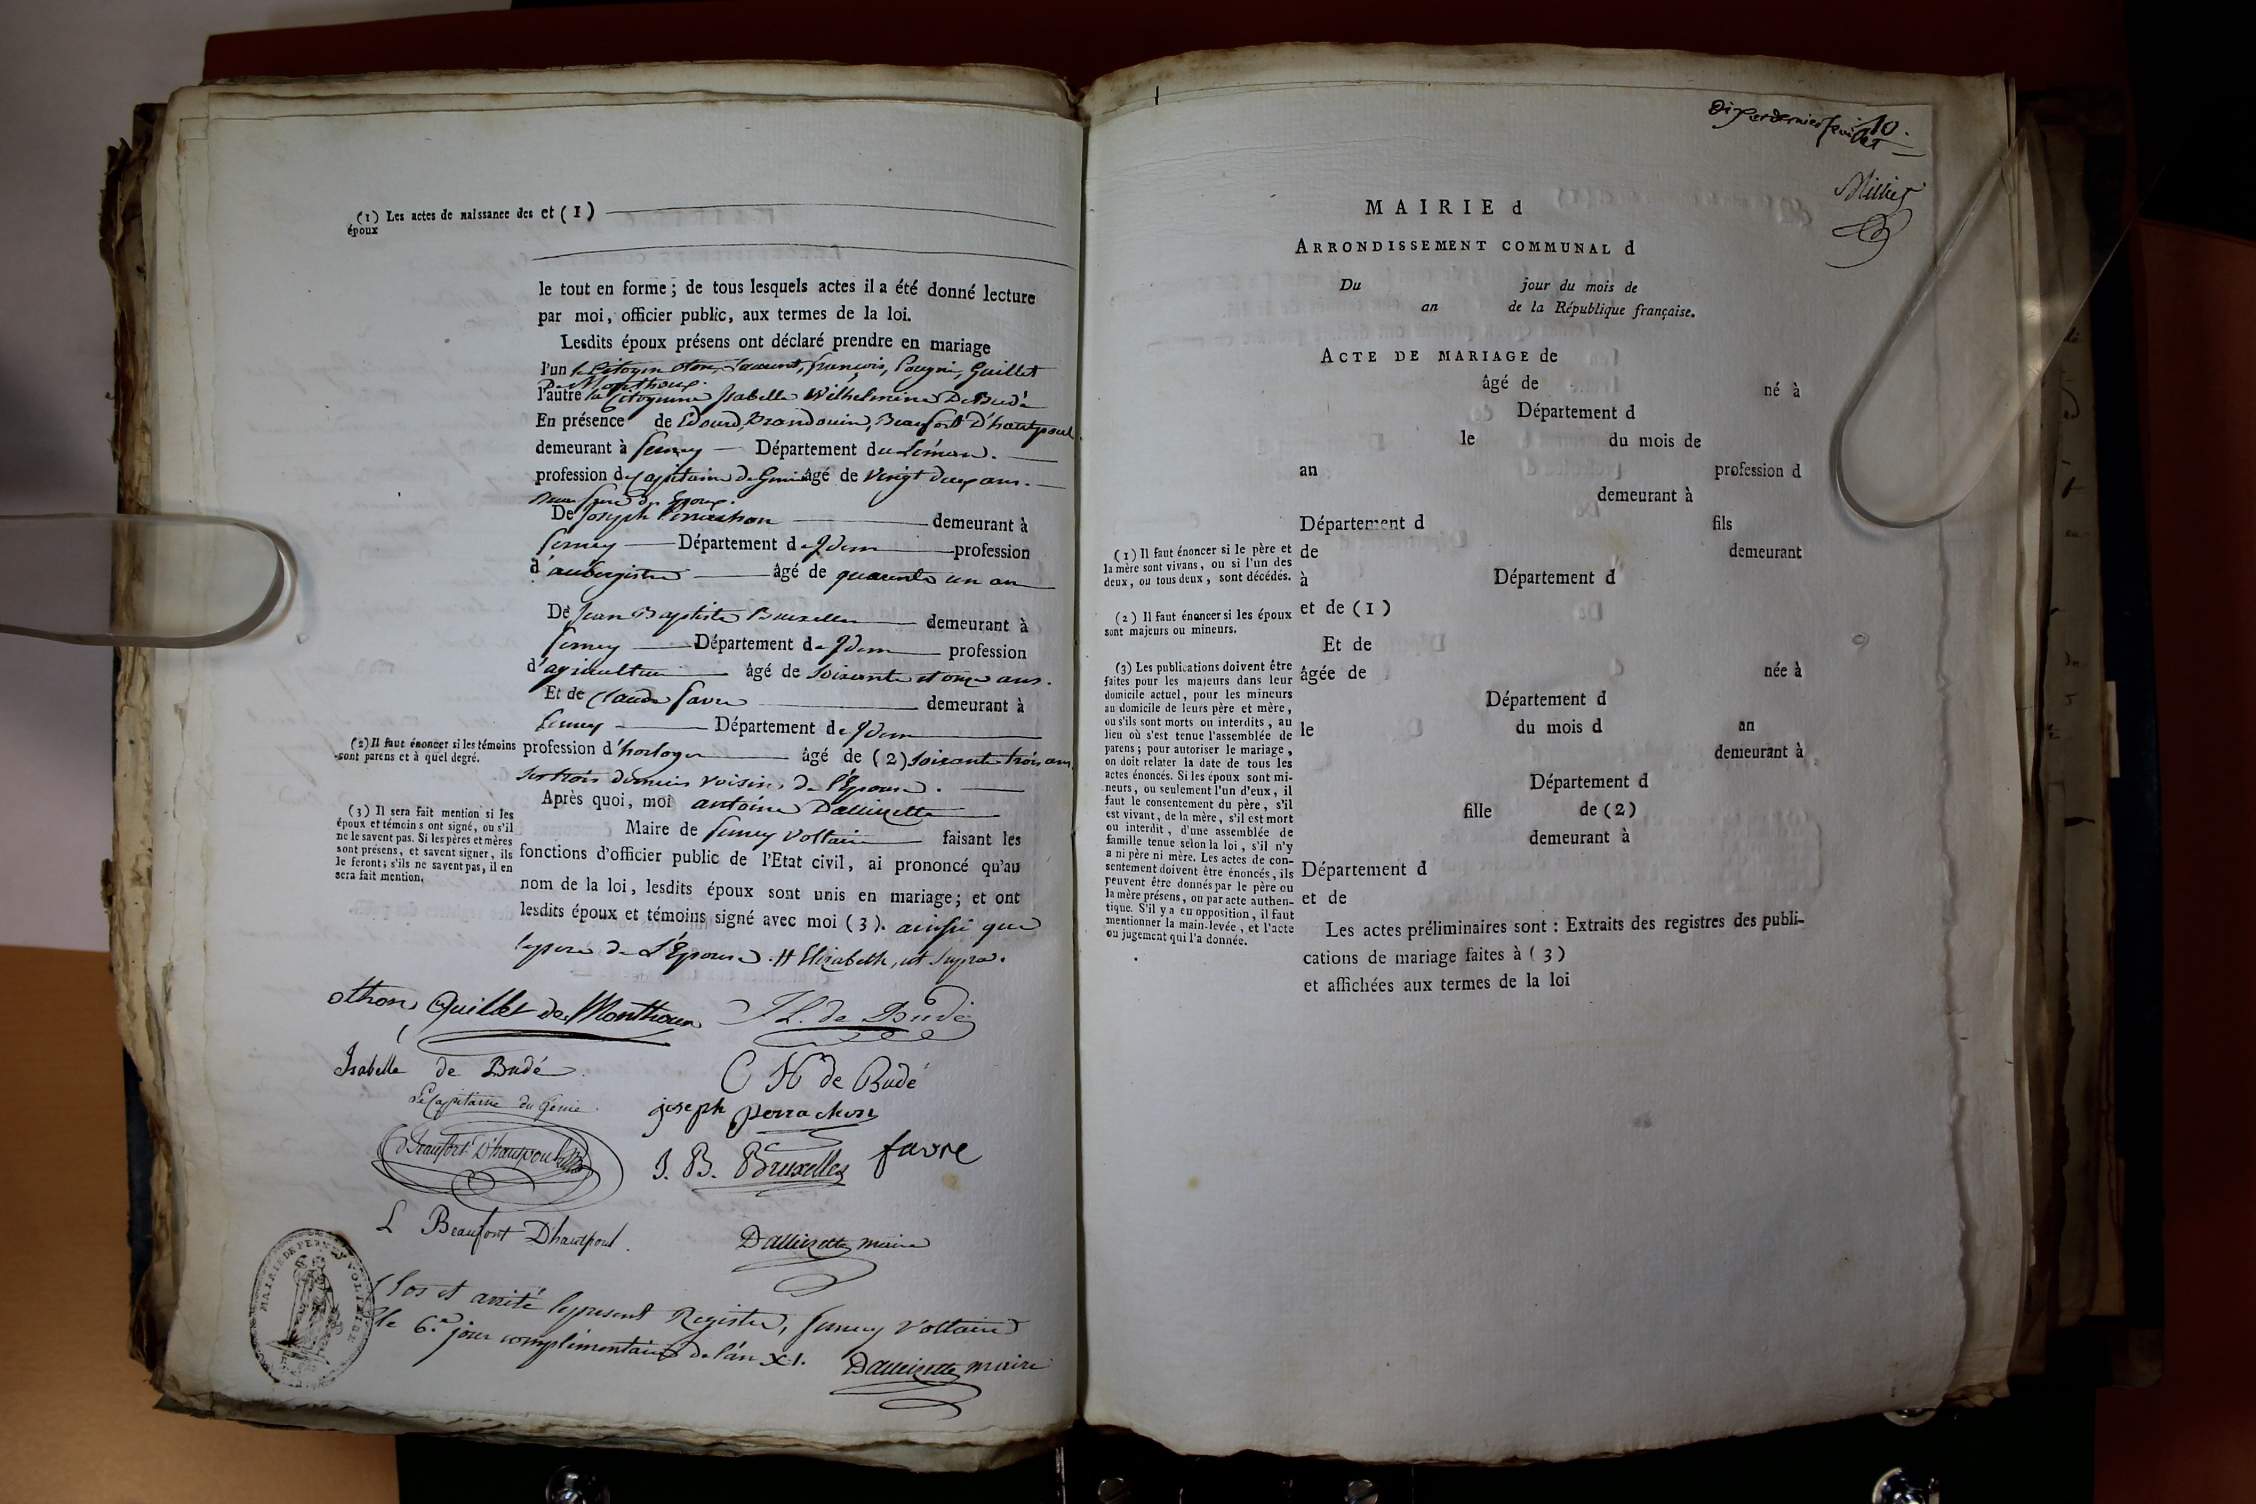 (1) Les actes de naissance des
époux
et (1)
le tout en forme ; de tous lesquels actes il a été donné lecture
par moi, officier public, aux termes de la loi.
Lesdits époux présens ont déclaré prendre en mariage
l'un le Citoyen oton, Laurent, françois, Pougni, Guillet
De Monthoux.
l'autre la Citoyenne Isabelle Wilhelmine De Budé
En présence de Edouard, Brandouin, Beaufort D'hautpoul
demeurant à ferney Département du Léman.
profession de Capitaine de Genie âgé de vingt deux ans.
Beau frere de Epoux.
De Joseph Perrachon demeurant à
ferney Département de Idem profession
d'aubergiste âgé de quarente un an
De Jean Baptiste Bruxelles demeurant à
ferney Département de Idem profession
d'agriculteur âgé de soixante et onze ans.
Et de Claude favre demeurant à
ferney Département de Idem
(2) Il faut énoncer si les témoins
sont parens et à quel degré.
profession d'horloger âgé de (2) soixante trois ans,
les trois derniers voisins de l'Epouse.
Après quoi, moi antoine Dallizette
Maire de ferney voltaire faisant les
fonctions d'officier public de l'Etat civil, ai prononcé qu'au
nom de la loi, lesdits époux sont unis en mariage ; et ont
lesdits époux et témoins signé avec moi (3). ainsi que
le pere de L'Epouse. # Elizabeth, ut supra.
(3) Il sera fait mention si les
époux et témoins ont signé, ou s'il
ne le savent pas. Si les pères et mères
sont présens, et savent signer, ils
le feront ; s'ils ne savent pas, il en
sera fait mention.
othon Guillet de Monthoux
de Budé
Isabelle de Budé.
C H de Budé
Le Capitaine du Génie.
joseph perrachon
Beaufort D'hautpoul
J. B. Bruxelles
favre
L Beaufort D'hautpoul.
Dallizette maire
MAIRIE DE FERNEY VOLTAIRE
Clos et arrêté le present Registre, ferney voltaire
le 6.e jour complémentaire de l'an XI.
Dallizette maire
10.
Dix et dernier feuillet
Millet
MAIRIE d
ARRONDISSEMENT COMMUNAL d
Du jour du mois de
an de la République française.
ACTE DE MARIAGE de
âgé de né à
Département d
le du mois de
an profession d
demeurant à
Département d fils
de demeurant
à Département d
et de (1)
Et de
âgée de née à
Département d
le du mois d an
demeurant à
Département d
fille de (2)
demeurant à
Département d
et de
Les actes préliminaires sont : Extraits des registres des publi-
cations de mariage faites à (3)
et affichées aux termes de la loi
(1) Il faut énoncer si le père et
la mère sont vivans, ou si l'un des
deux, ou tous deux, sont décédés.
(2) Il faut énoncer si les époux
sont majeurs ou mineurs.
(3) Les publications doivent être
faites pour les majeurs dans leur
domicile actuel, pour les mineurs
au domicile de leurs père et mère,
ou s'ils sont morts ou interdits, au
lieu où s'est tenue l'assemblée de
parens ; pour autoriser le mariage,
on doit relater la date de tous les
actes énoncés. Si les époux sont mi-
neurs, ou seulement l'un d'eux, il
faut le consentement du père, s'il
est vivant, de la mère, s'il est mort
ou interdit, d'une assemblée de
famille tenue selon la loi, s'il n'y
a ni père ni mère. Les actes de con-
sentement doivent être énoncés, ils
peuvent être donnés par le père ou
la mère présens, ou par acte authen-
tique. S'il y a eu opposition, il faut
mentionner la main-levée, et l'acte
ou jugement qui l'a donnée.